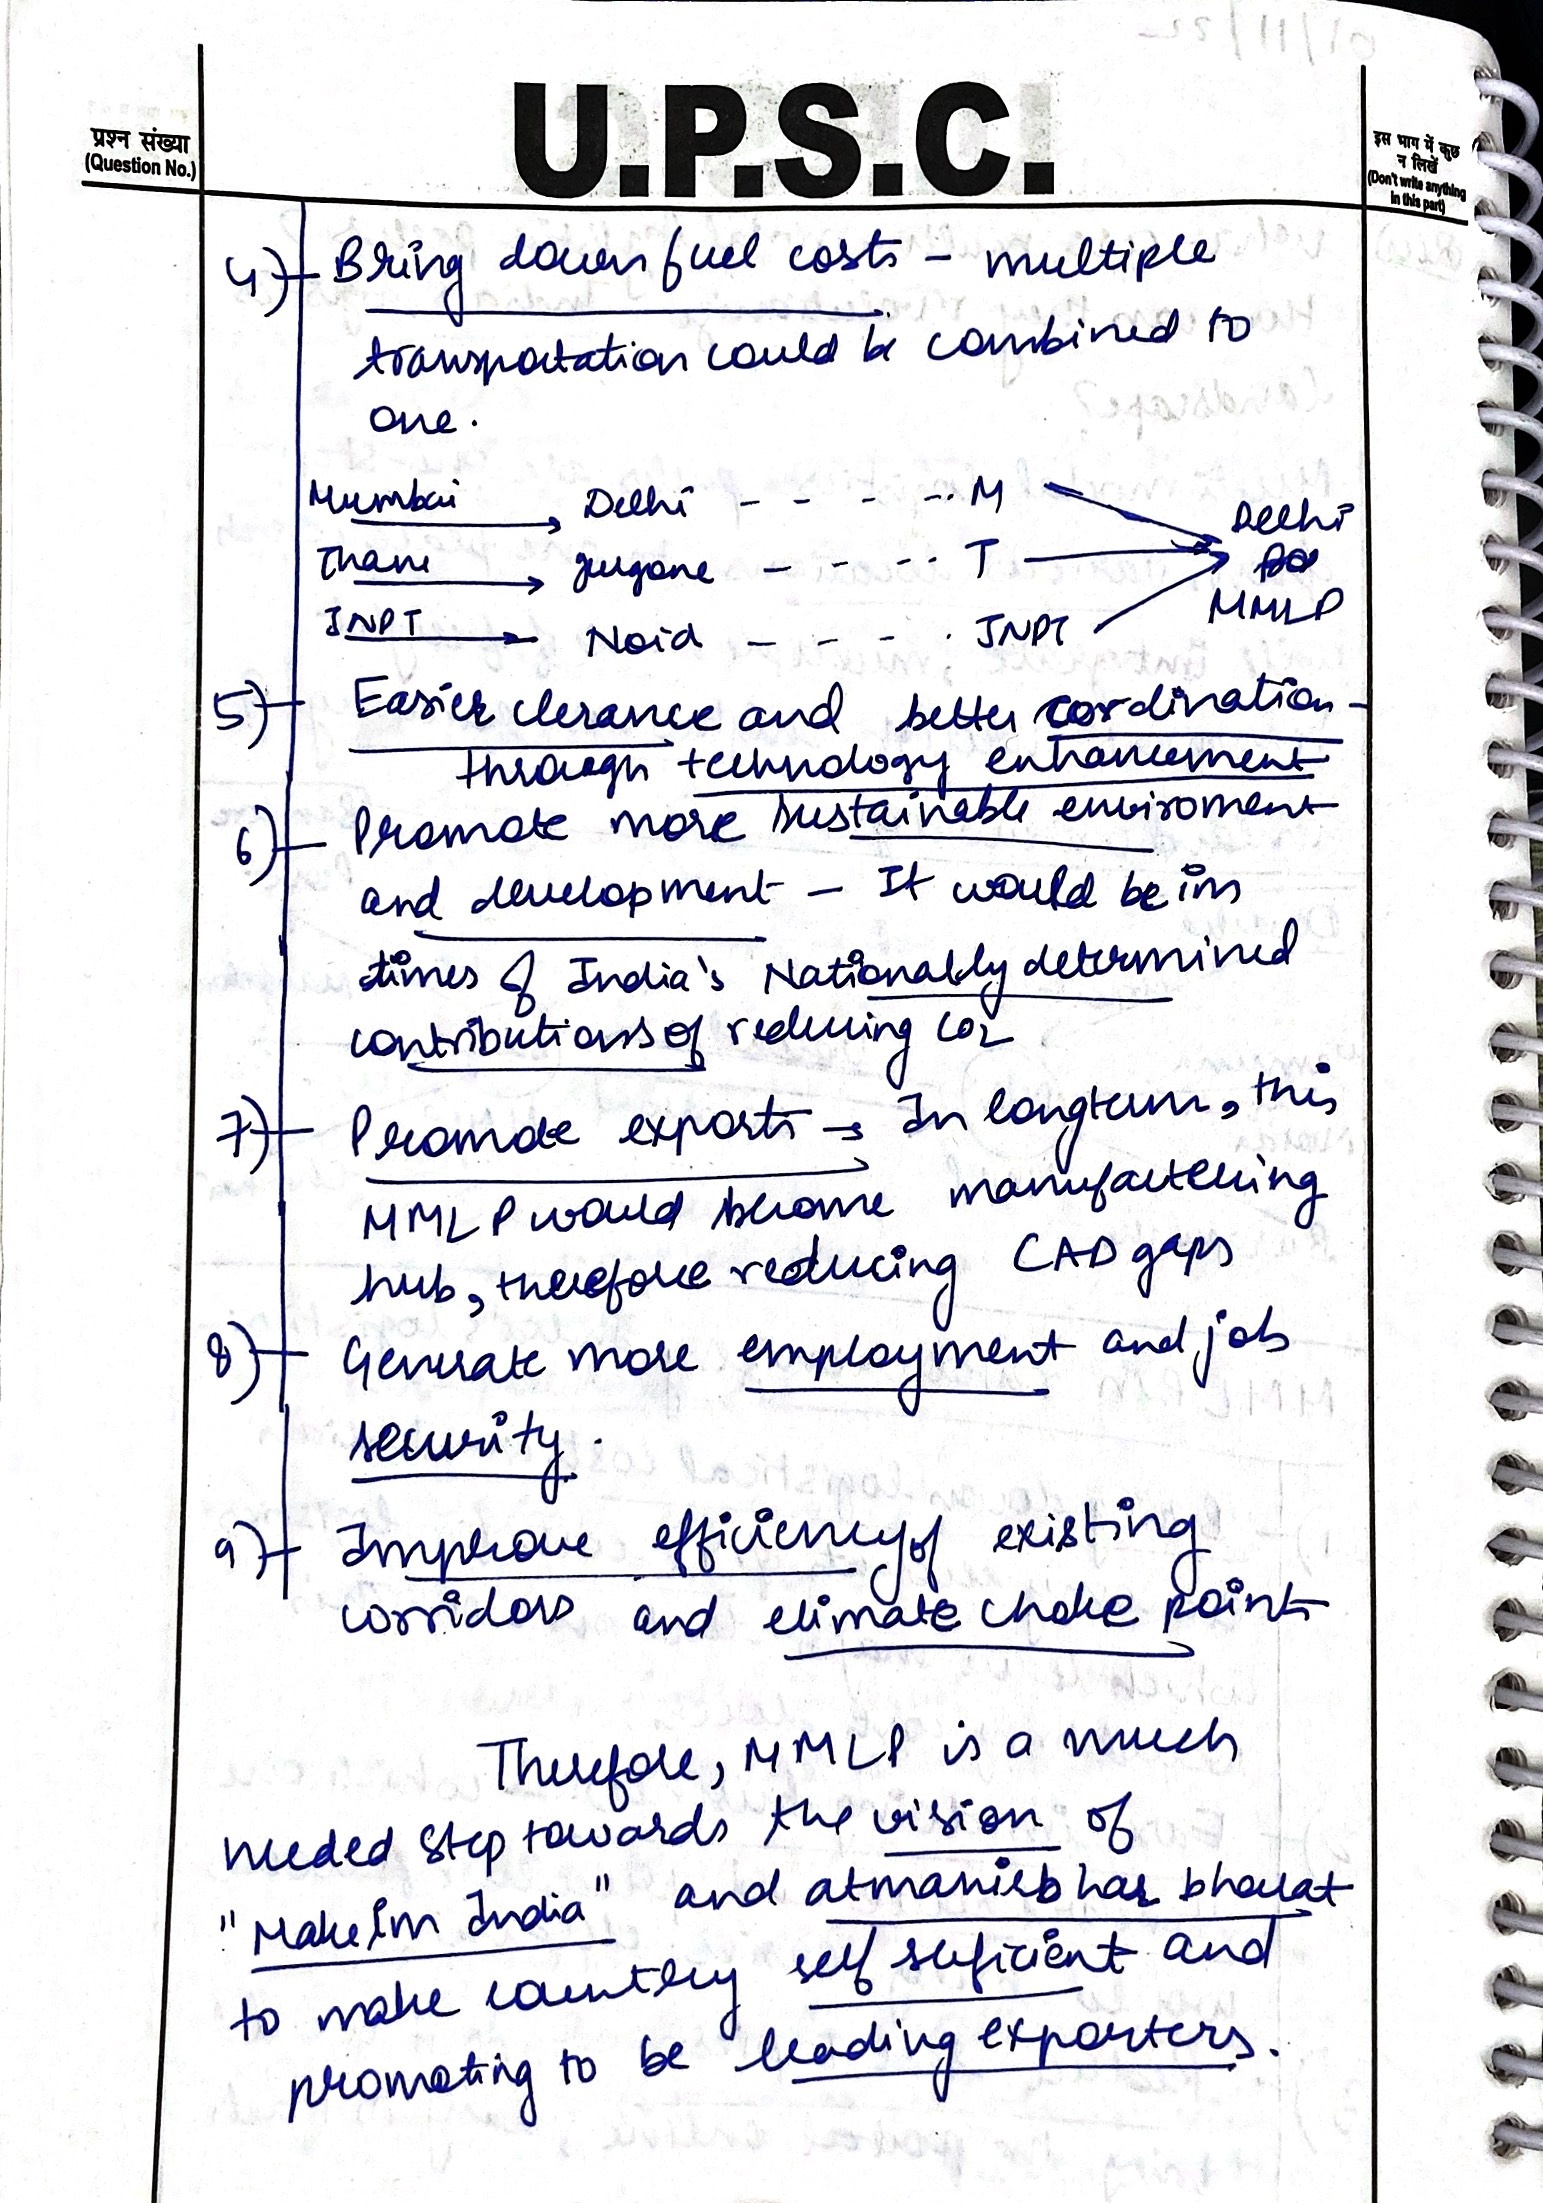 U.P.S.C.
प्रश्न संख्या
(Question No.)
इस भाग में कुछ
न लिखें
(Don't write anything
in this part)
4) Bring down fuel costs - multiple
transportation could be combined to
one.
Mumbai → Delhi - - - - M
Delhi
Thane → gurgone - - - - T
JNPT → Noid - - - . JNPT
MMLP
5) Easier clerance and better cordination -
through technology enhancement
6) Promote more sustainable enviroment
and development - It would be in
times of India's Nationally determined
contributions of reducing CO2
7) Promote exports → In longterm, this
MMLP would become manufacturing
hub, therefore reducing CAD gaps
8) Generate more employment and job
security.
9) Improve efficiency of existing
corridors and elimate choke points
Therefore, MMLP is a much
needed step towards the vision of
"Make in India" and atmanirbhar bharat
to make country self suficient and
promoting to be leading exporters.